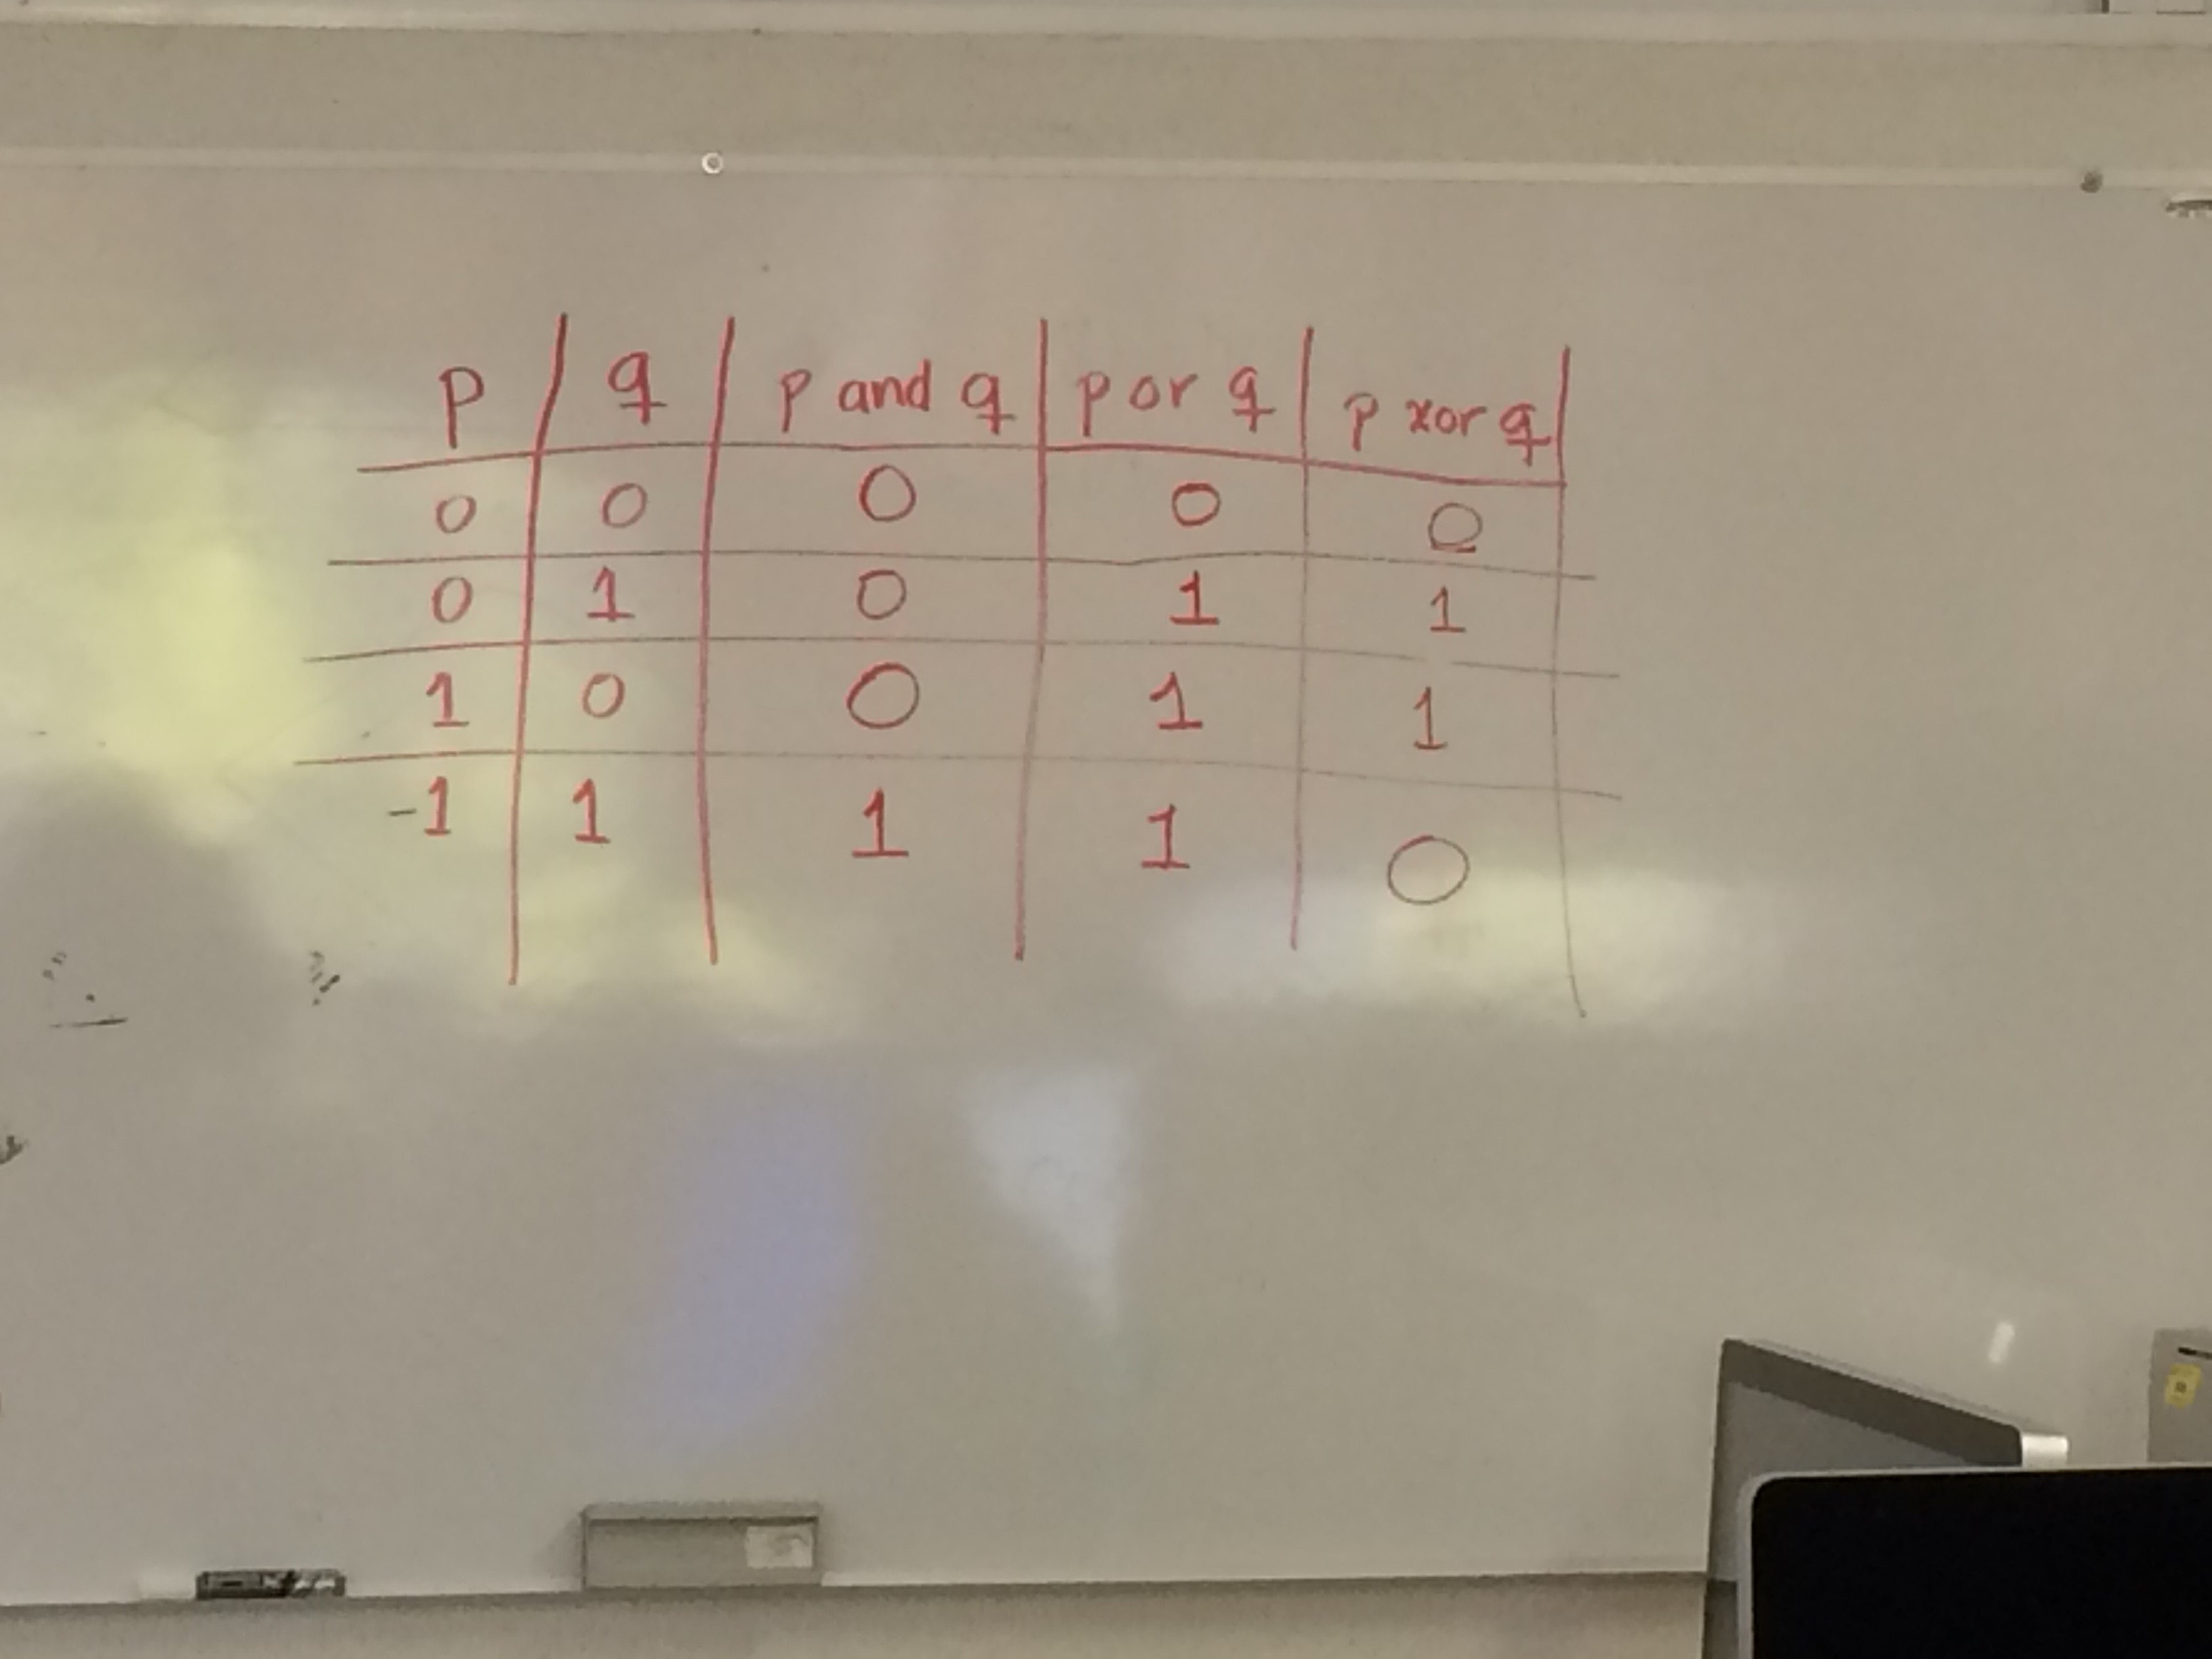 p q p and q p or q p xor q
0 0 0 0 0
0 1 0 1 1
1 0 0 1 1
-1 1 1 1 0